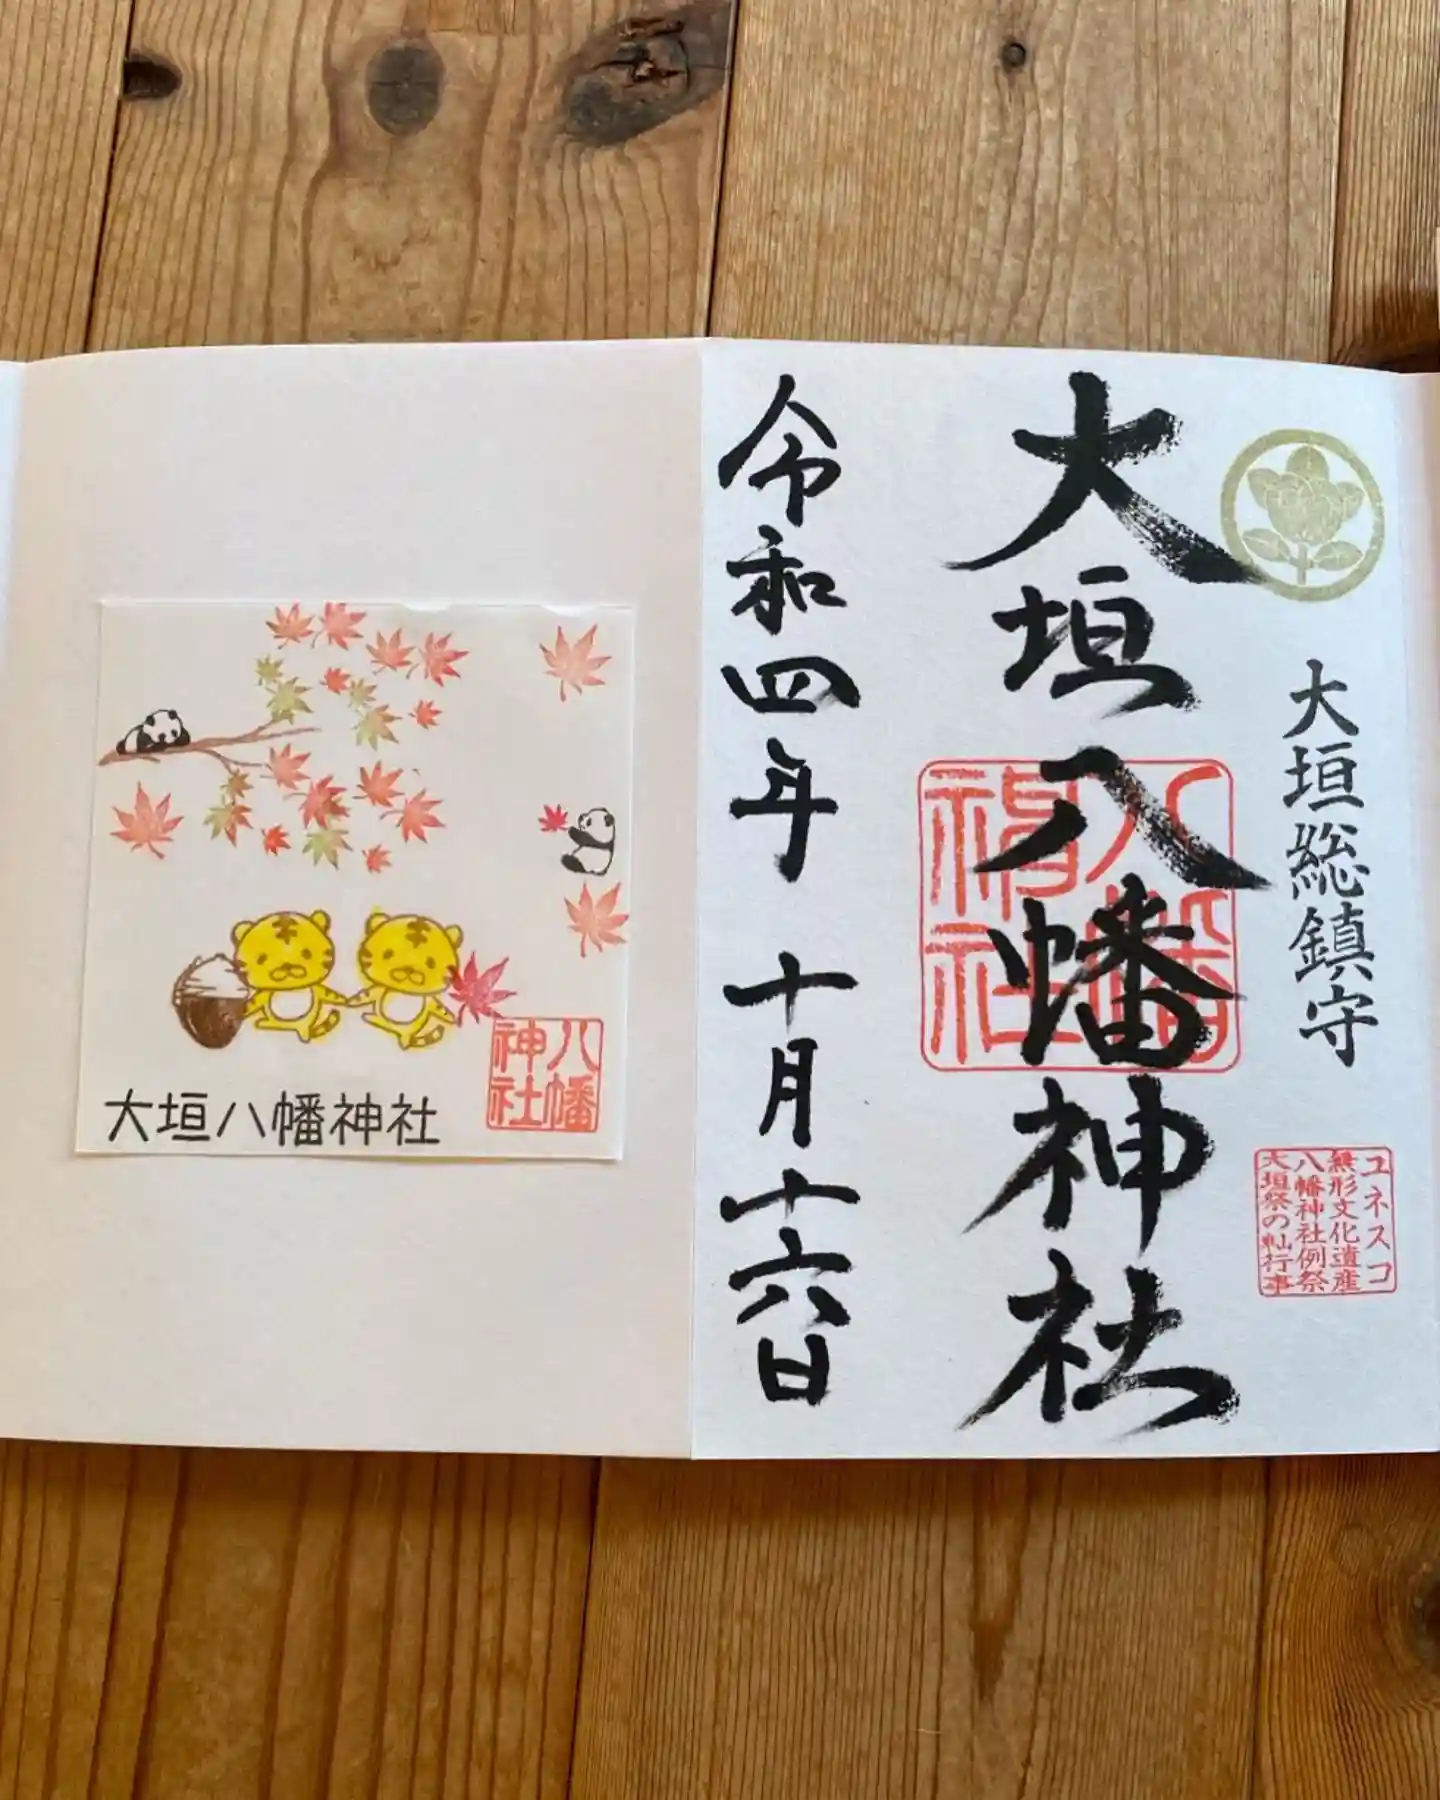 大垣総鎮守
ユネスコ
無形文化遺産
八幡神社例祭
大垣祭の軕行事
大垣八幡神社
八幡
神社
令和四年 十月十六日
八幡
神社
大垣八幡神社